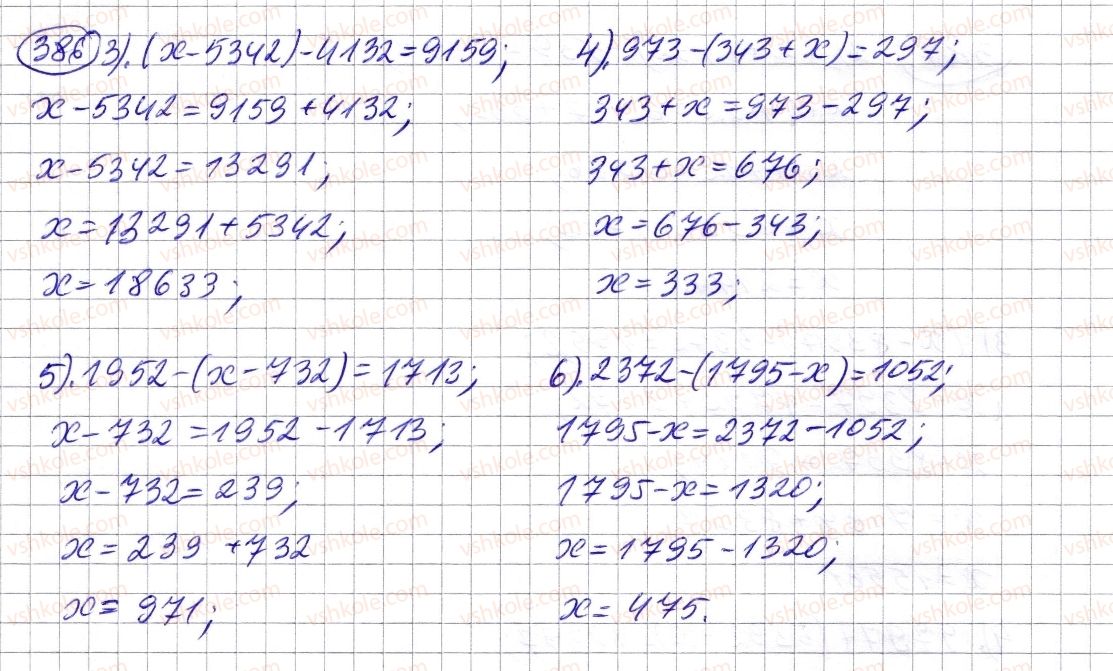 386 3). (x-5342)-4132=9159;
x-5342=9159+4132;
x-5342=13291;
x=13291+5342;
x=18633;
4). 973-(343+x)=297;
343+x=973-297;
343+x=676;
x=676-343;
x=333;
5). 1952-(x-732)=1713;
x-732=1952-1713;
x-732=239;
x=239+732
x=971;
6). 2372-(1795-x)=1052;
1795-x=2372-1052;
1795-x=1320;
x=1795-1320;
x=475.